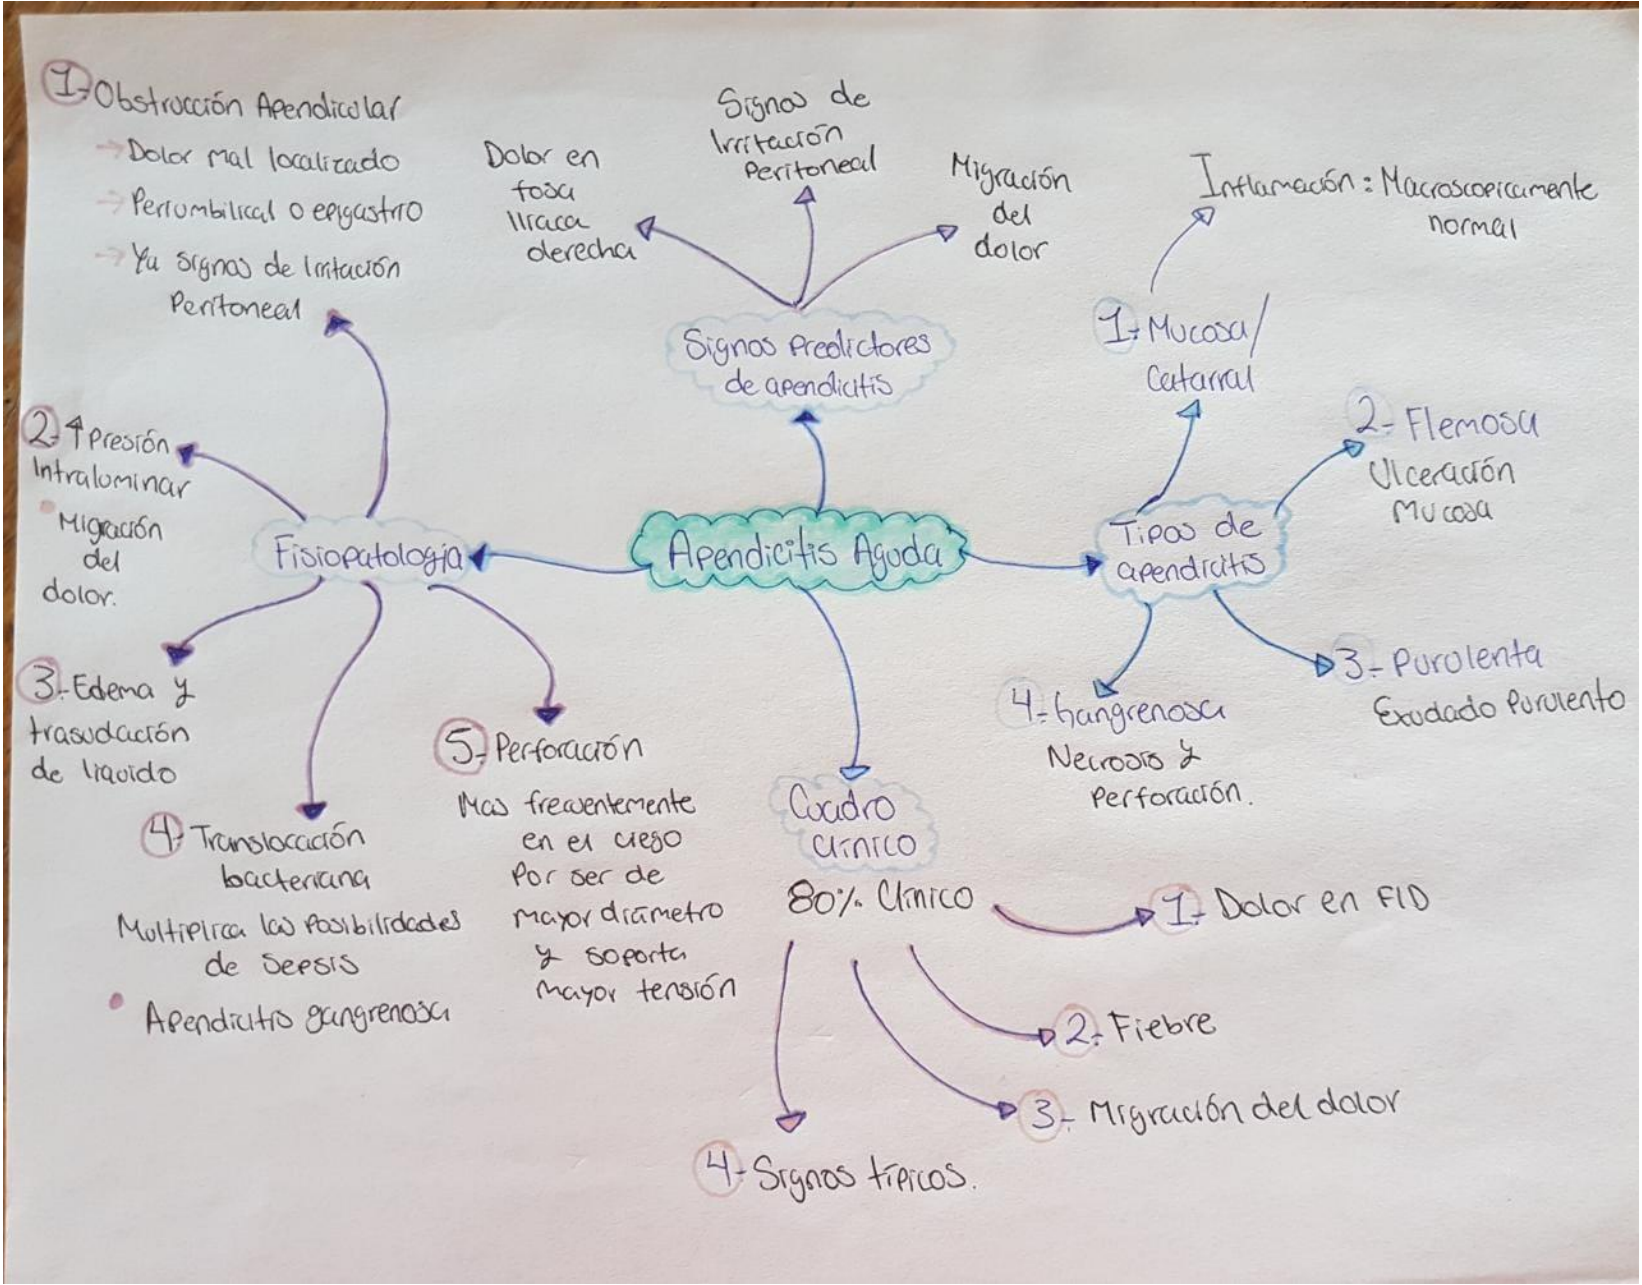 Apendicitis Aguda
Fisiopatología
1- Obstrucción Apendicular
→ Dolor mal localizado
→ Periumbilical o epigastrio
→ Ya signos de Irritación
Peritoneal
2- ↑ Presión
Intraluminar
• Migración
del
dolor.
3- Edema y
trasudación
de liquido
4- Translocación
bacteriana
Multiplica las Posibilidades
de Sepsis
• Apendicitis gangrenosa
5- Perforación
Mas frecuentemente
en el ciego
Por ser de
mayor diámetro
y soporta
mayor tensión
Signos Predictores
de apendicitis
Dolor en
fosa
Iliaca
derecha
Signos de
Irritación
Peritoneal
Migración
del
dolor
Tipos de
apendicitis
1- Mucosa/
Catarral
Inflamación: Macroscopicamente
normal
2- Flemosa
Ulceración
Mucosa
3- Purulenta
Exudado Purulento
4- Gangrenosa
Necrosis y
Perforación.
Cuadro
Clínico
80% Clínico
1- Dolor en FID
2- Fiebre
3- Migración del dolor
4- Signos típicos.